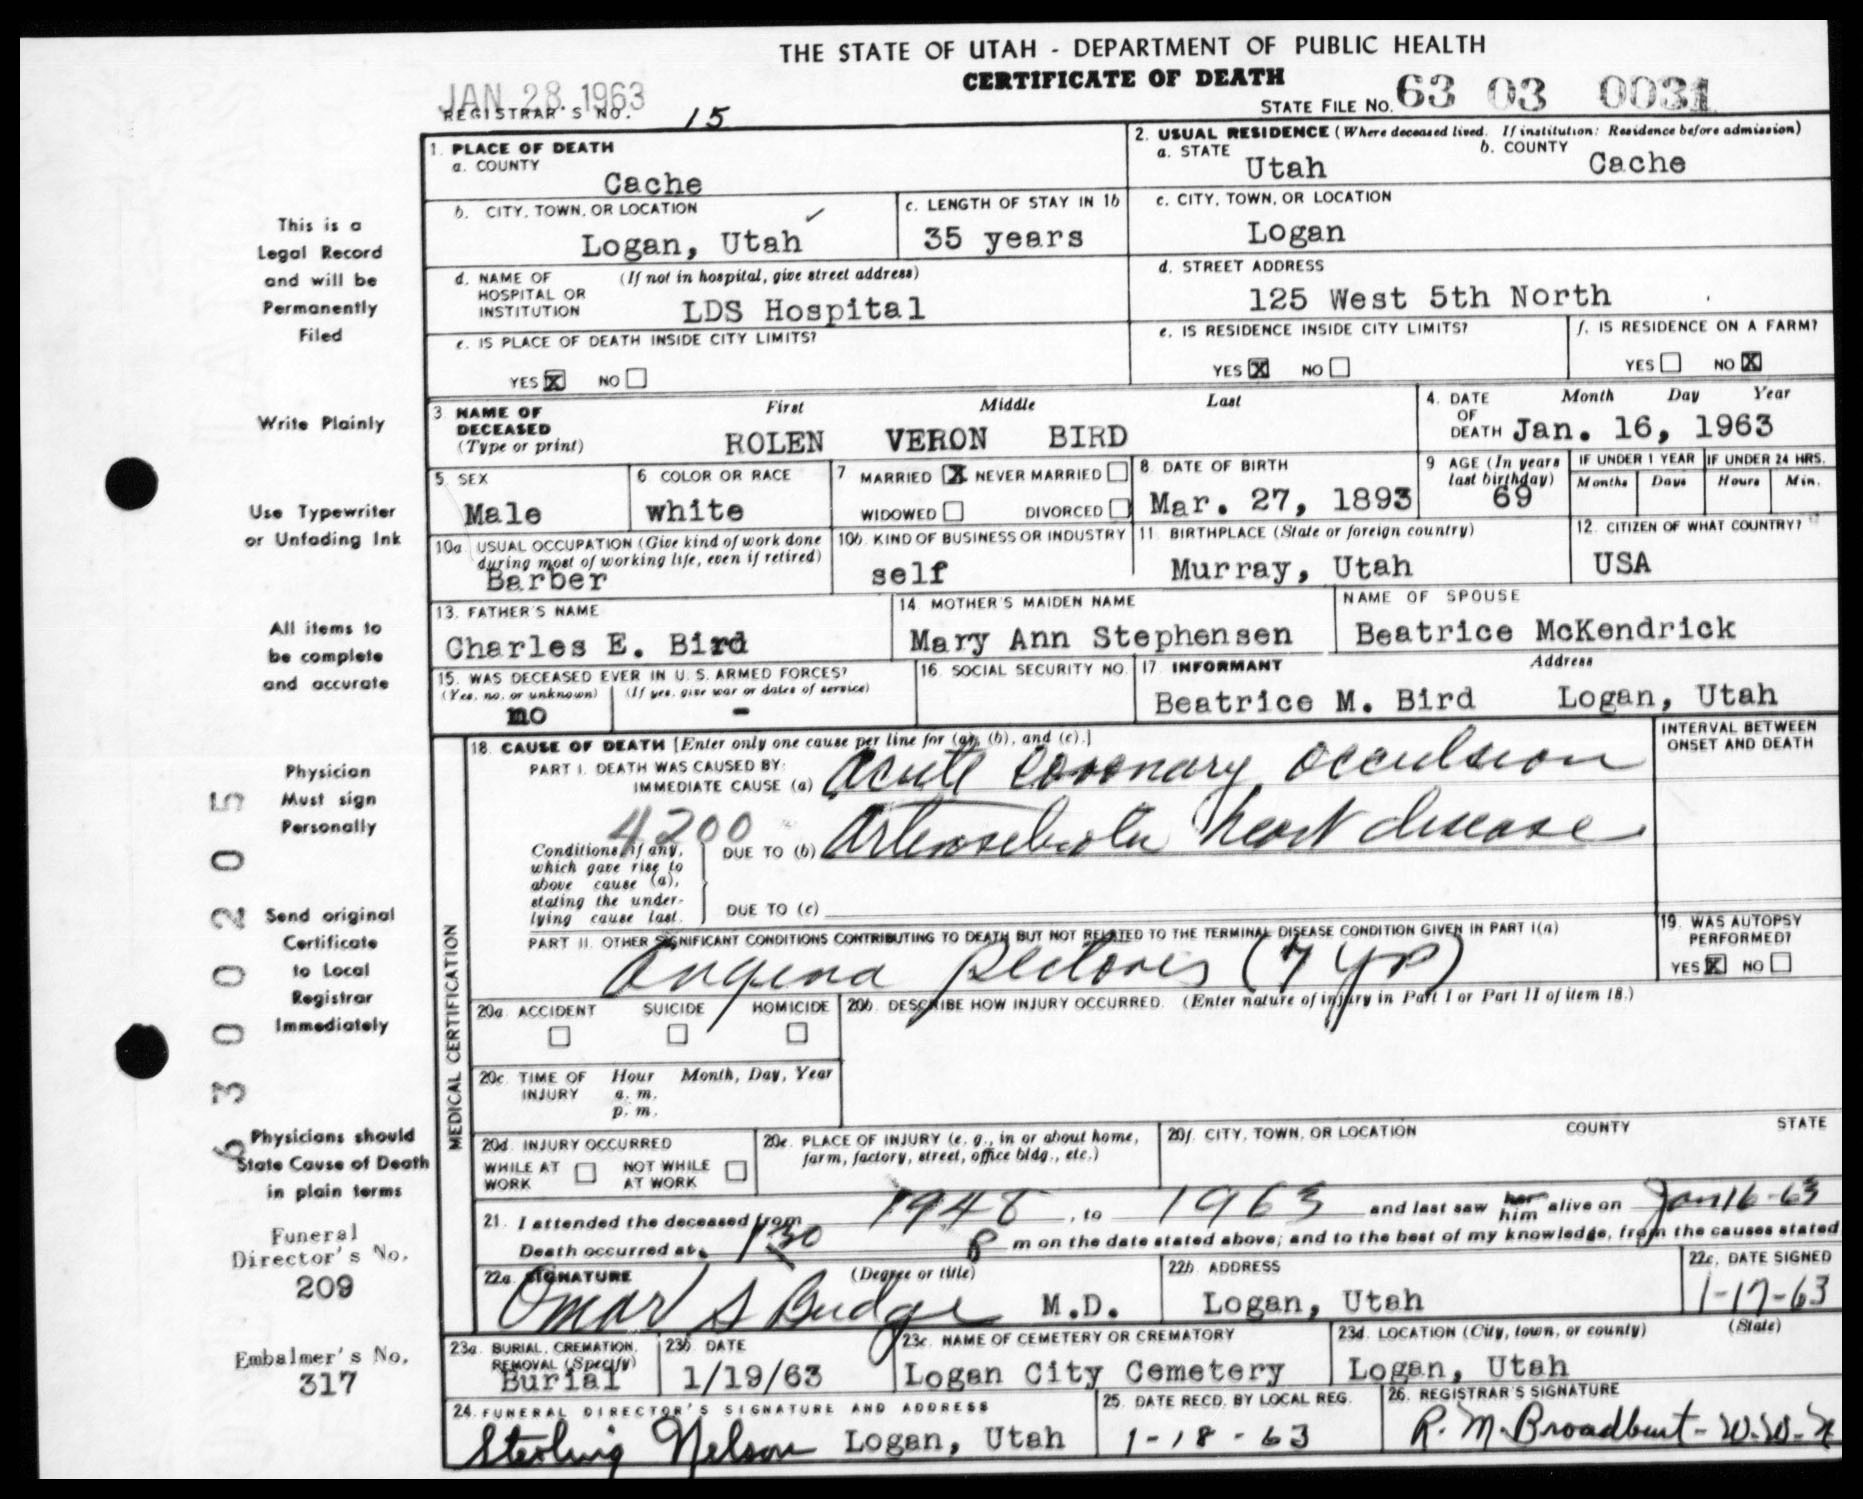 THE STATE OF UTAH - DEPARTMENT OF PUBLIC HEALTH
CERTIFICATE OF DEATH
JAN 28 1963
REGISTRAR'S NO. 15
STATE FILE NO. 63 03 0031
1. PLACE OF DEATH
a. COUNTY
Cache
2. USUAL RESIDENCE (Where deceased lived. If institution: Residence before admission)
a. STATE Utah b. COUNTY Cache
b. CITY, TOWN, OR LOCATION
Logan, Utah
c. LENGTH OF STAY IN 1b
35 years
c. CITY, TOWN, OR LOCATION
Logan
d. NAME OF HOSPITAL OR INSTITUTION (If not in hospital, give street address)
LDS Hospital
d. STREET ADDRESS
125 West 5th North
e. IS PLACE OF DEATH INSIDE CITY LIMITS?
YES X NO
e. IS RESIDENCE INSIDE CITY LIMITS?
YES X NO
f. IS RESIDENCE ON A FARM?
YES NO X
3. NAME OF DECEASED (Type or print)
First Middle Last
ROLEN VERON BIRD
4. DATE OF DEATH Month Day Year
Jan. 16, 1963
5. SEX
Male
6 COLOR OR RACE
white
7 MARRIED X NEVER MARRIED
WIDOWED DIVORCED
8 DATE OF BIRTH
Mar. 27, 1893
9 AGE (In years last birthday)
69
IF UNDER 1 YEAR
Months Days
IF UNDER 24 HRS.
Hours Min.
10a USUAL OCCUPATION (Give kind of work done during most of working life, even if retired)
Barber
10b. KIND OF BUSINESS OR INDUSTRY
self
11. BIRTHPLACE (State or foreign country)
Murray, Utah
12. CITIZEN OF WHAT COUNTRY?
USA
13. FATHER'S NAME
Charles E. Bird
14 MOTHER'S MAIDEN NAME
Mary Ann Stephensen
NAME OF SPOUSE
Beatrice McKendrick
15. WAS DECEASED EVER IN U. S. ARMED FORCES?
(Yes, no, or unknown) (If yes, give war or dates of service)
no -
16. SOCIAL SECURITY NO.
17 INFORMANT Address
Beatrice M. Bird Logan, Utah
18. CAUSE OF DEATH [Enter only one cause per line for (a), (b), and (c).]
INTERVAL BETWEEN ONSET AND DEATH
PART I. DEATH WAS CAUSED BY:
IMMEDIATE CAUSE (a) Acute coronary occulsion
4200
Conditions, if any, which gave rise to above cause (a), stating the underlying cause last.
DUE TO (b) Arteriosclerotic heart disease
DUE TO (c)
PART II. OTHER SIGNIFICANT CONDITIONS CONTRIBUTING TO DEATH BUT NOT RELATED TO THE TERMINAL DISEASE CONDITION GIVEN IN PART I(a)
Angina pectoris (7 yrs)
19. WAS AUTOPSY PERFORMED?
YES X NO
MEDICAL CERTIFICATION
20a. ACCIDENT SUICIDE HOMICIDE
20b. DESCRIBE HOW INJURY OCCURRED. (Enter nature of injury in Part I or Part II of item 18.)
20c. TIME OF INJURY Hour Month, Day, Year
a. m.
p. m.
20d. INJURY OCCURRED
WHILE AT WORK NOT WHILE AT WORK
20e. PLACE OF INJURY (e. g., in or about home, farm, factory, street, office bldg., etc.)
20f. CITY, TOWN, OR LOCATION COUNTY STATE
21. I attended the deceased from 1948, to 1963 and last saw her him alive on Jan 16-63
Death occurred at 1:30 P m on the date stated above; and to the best of my knowledge, from the causes stated
22a. SIGNATURE (Degree or title)
Omar S Budge M.D.
22b ADDRESS
Logan, Utah
22c. DATE SIGNED
1-17-63
23a. BURIAL, CREMATION, REMOVAL (Specify)
Burial
23b DATE
1/19/63
23c. NAME OF CEMETERY OR CREMATORY
Logan City Cemetery
23d. LOCATION (City, town, or county) (State)
Logan, Utah
24. FUNERAL DIRECTOR'S SIGNATURE AND ADDRESS
Sterling Nelson Logan, Utah
25. DATE RECD. BY LOCAL REG.
1-18-63
26. REGISTRAR'S SIGNATURE
R. M. Broadbent
This is a
Legal Record
and will be
Permanently
Filed
Write Plainly
Use Typewriter
or Unfading Ink
All items to
be complete
and accurate
Physician
Must sign
Personally
Send original
Certificate
to Local
Registrar
Immediately
Physicians should
State Cause of Death
in plain terms
Funeral
Director's No.
209
Embalmer's No.
317
63000205